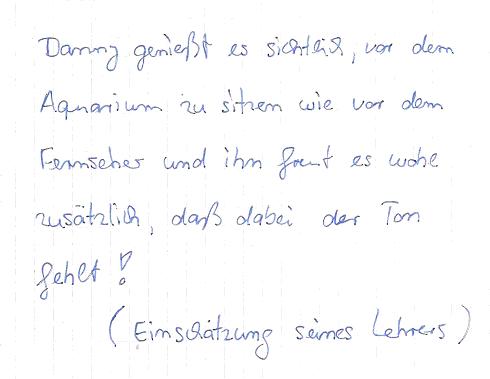 Danny genießt es sichtlich, vor dem
Aquarium zu sitzen wie vor dem
Fernseher und ihn freut es wohl
zusätzlich, daß dabei der Ton
fehlt!
(Einschätzung seines Lehrers)